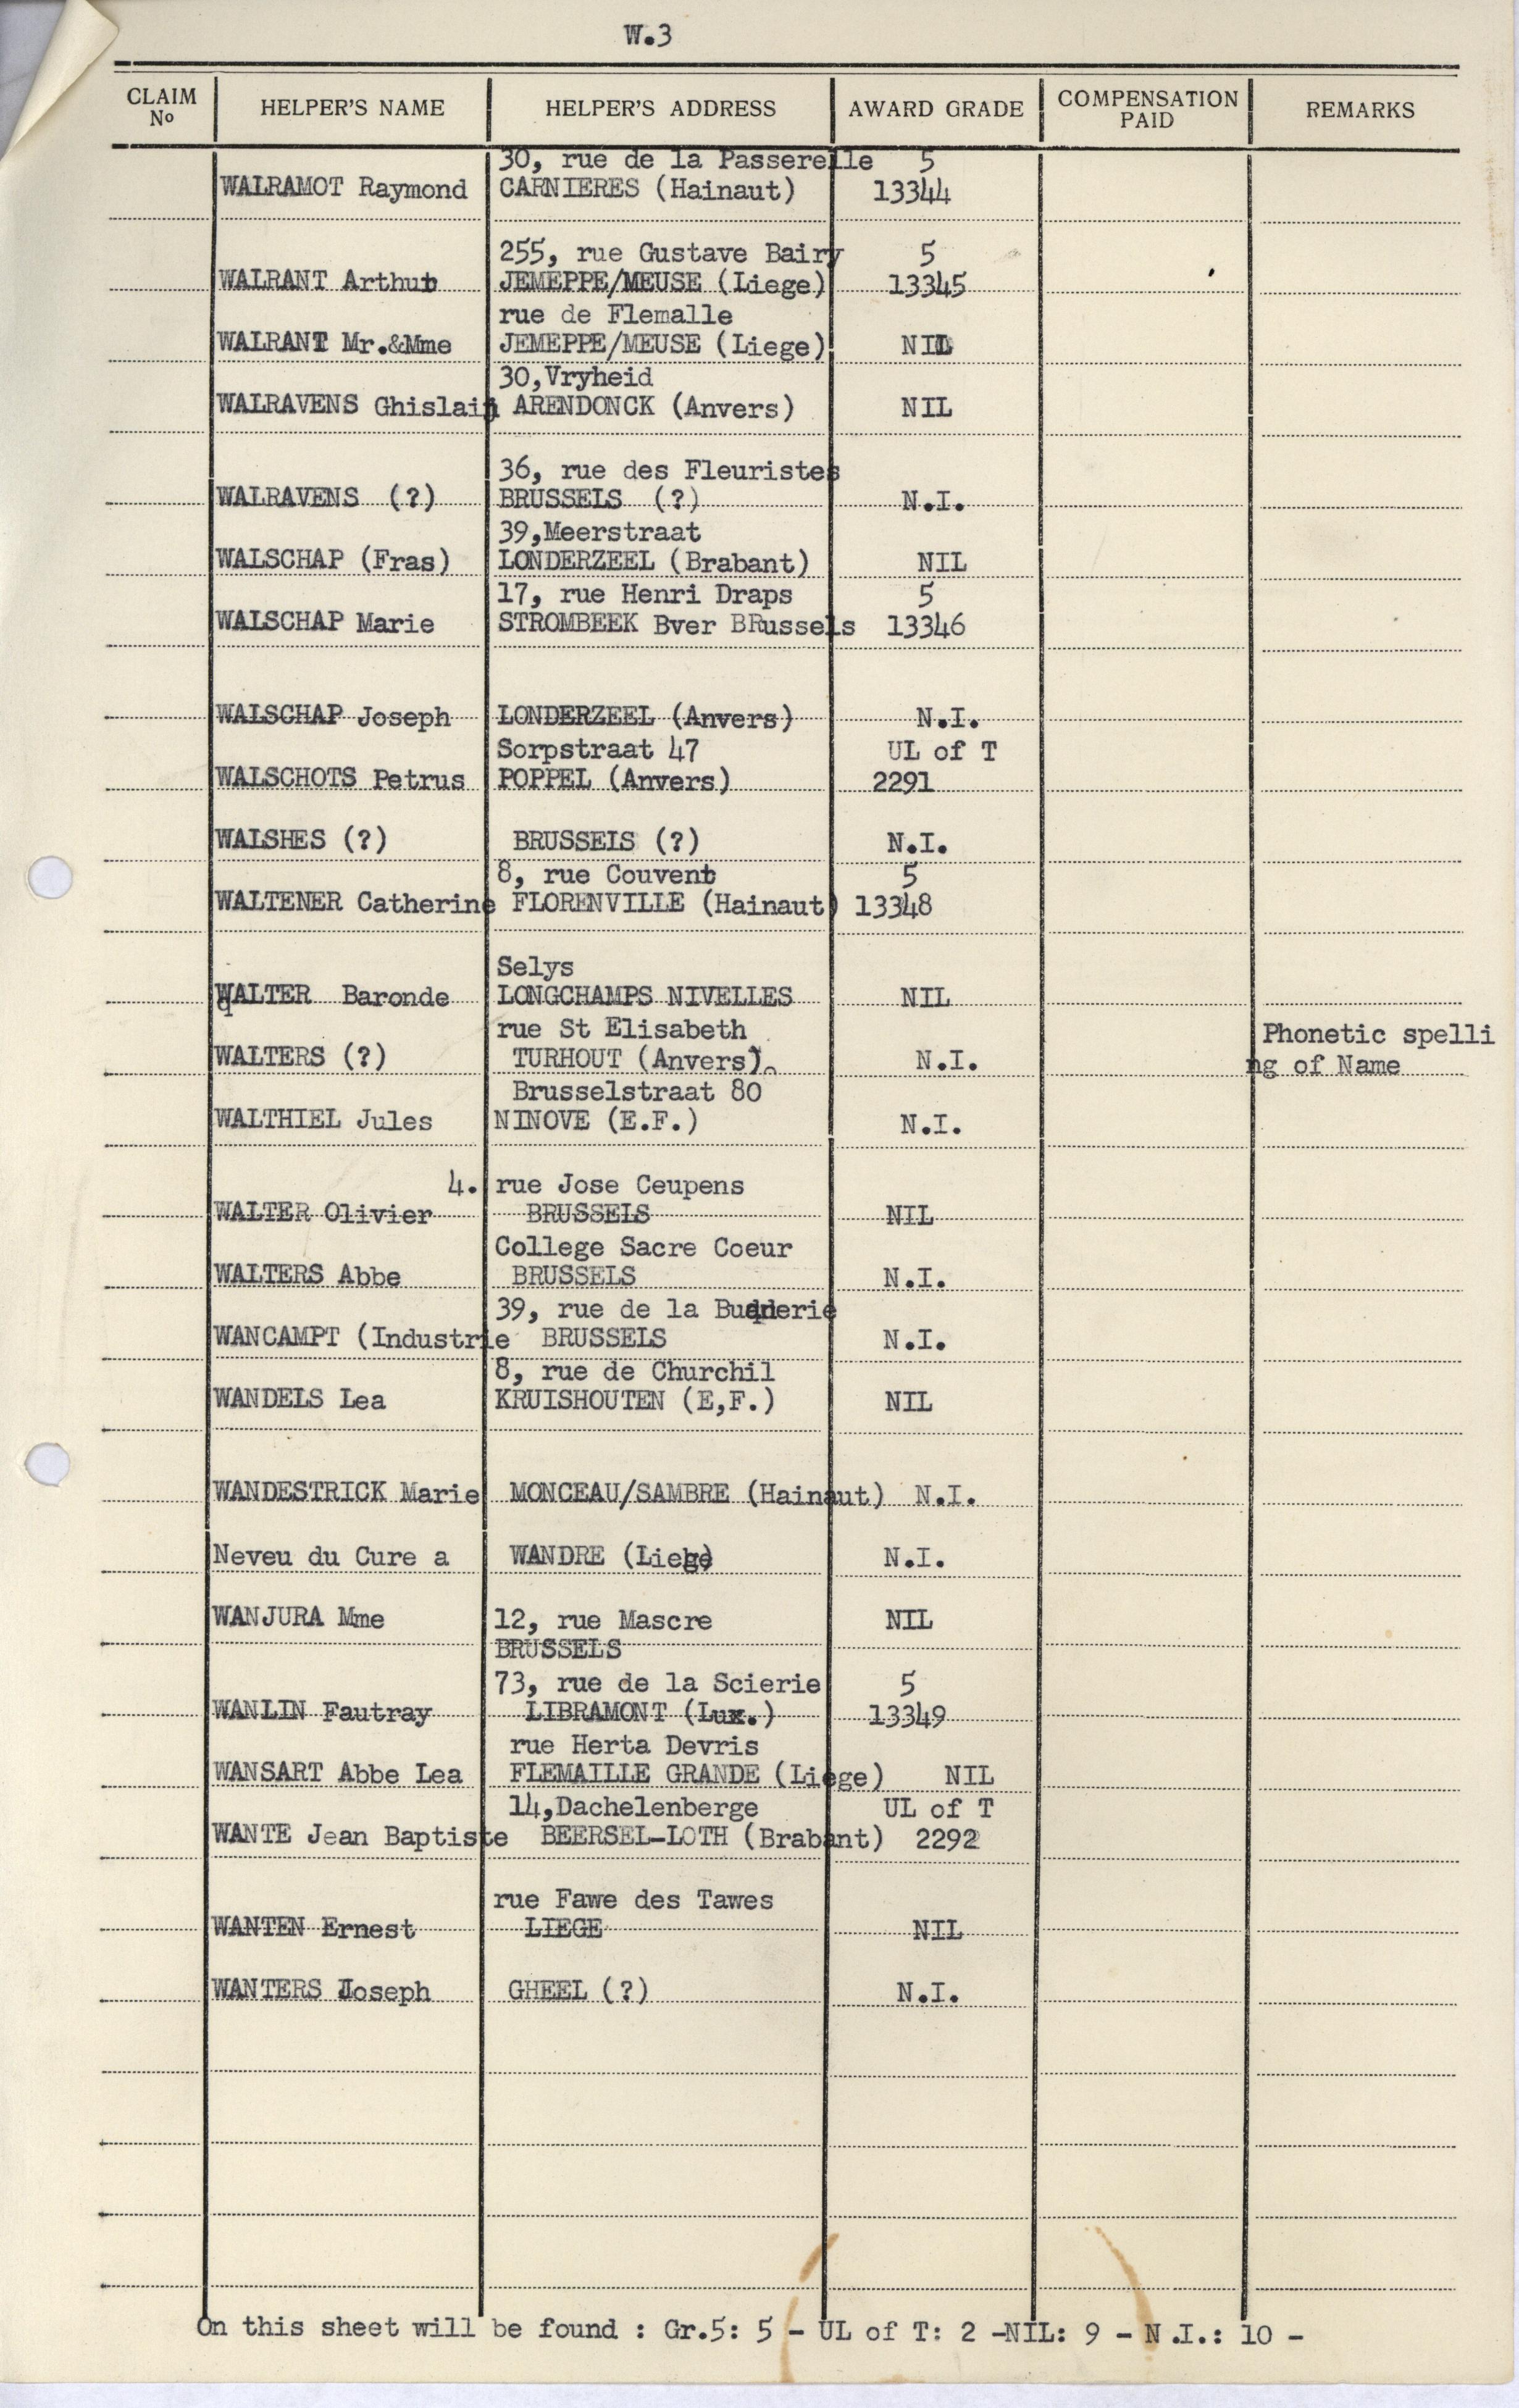 W.3
CLAIM No HELPER'S NAME HELPER'S ADDRESS AWARD GRADE COMPENSATION PAID REMARKS
30, rue de la Passerelle 5
WALRAMOT Raymond CARNIERES (Hainaut) 13344
255, rue Gustave Bairy 5
WALRANT Arthur JEMEPPE/MEUSE (Liege) 13345
rue de Flemalle
WALRANT Mr.&Mme JEMEPPE/MEUSE (Liege) NIL
30,Vryheid
WALRAVENS Ghislain ARENDONCK (Anvers) NIL
36, rue des Fleuristes
WALRAVENS (?) BRUSSELS (?) N.I.
39,Meerstraat
WALSCHAP (Fras) LONDERZEEL (Brabant) NIL
17, rue Henri Draps 5
WALSCHAP Marie STROMBEEK Bver BRussels 13346
WALSCHAP Joseph LONDERZEEL (Anvers) N.I.
Sorpstraat 47 UL of T
WALSCHOTS Petrus POPPEL (Anvers) 2291
WALSHES (?) BRUSSELS (?) N.I.
8, rue Couvent 5
WALTENER Catherine FLORENVILLE (Hainaut) 13348
Selys
WALTER Baronde LONGCHAMPS NIVELLES NIL
rue St Elisabeth Phonetic spelli
WALTERS (?) TURHOUT (Anvers). N.I. ng of Name
Brusselstraat 80
WALTHIEL Jules NINOVE (E.F.) N.I.
4. rue Jose Ceupens
WALTER Olivier BRUSSELS NIL
College Sacre Coeur
WALTERS Abbe BRUSSELS N.I.
39, rue de la
WANCAMPT (Industrie BRUSSELS N.I.
8, rue de Churchil
WANDELS Lea KRUISHOUTEN (E,F.) NIL
WANDESTRICK Marie MONCEAU/SAMBRE (Hainaut) N.I.
Neveu du Cure a WANDRE (Liege) N.I.
WANJURA Mme 12, rue Mascre NIL
BRUSSELS
73, rue de la Scierie 5
WANLIN Fautray LIBRAMONT (Lux.) 13349
rue Herta Devris
WANSART Abbe Lea FLEMAILLE GRANDE (Liege) NIL
14,Dachelenberge UL of T
WANTE Jean Baptiste BEERSEL-LOTH (Brabant) 2292
rue Fawe des Tawes
WANTEN Ernest LIEGE NIL
WANTERS Joseph GHEEL (?) N.I.
On this sheet will be found : Gr.5: 5 - UL of T: 2 -NIL: 9 - N.I.: 10 -